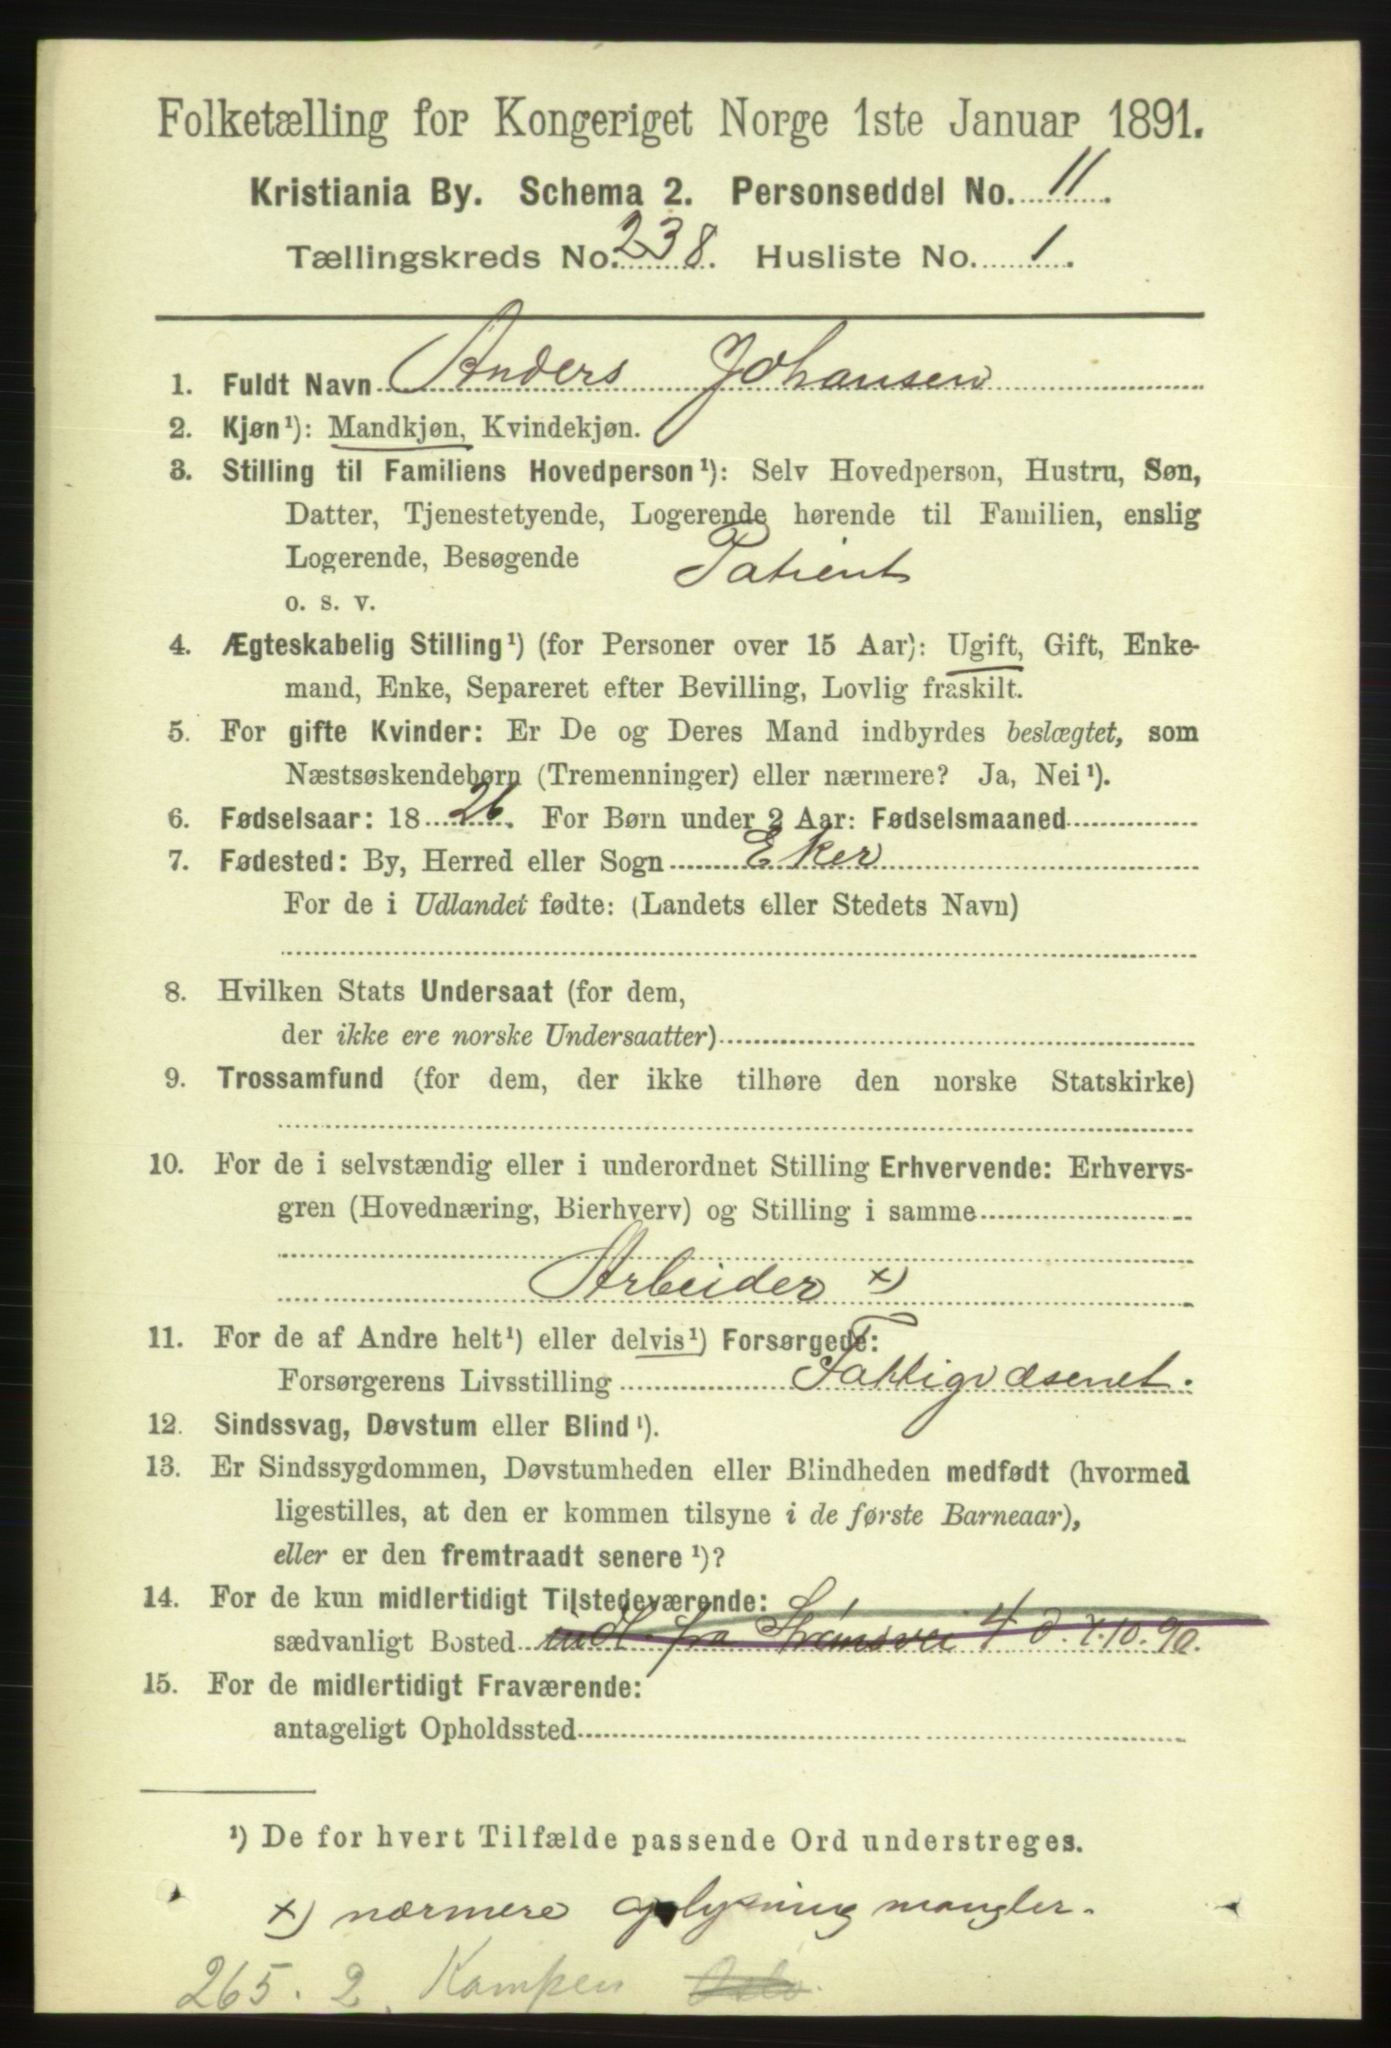 Folketælling for Kongeriget Norge 1ste Januar 1891.
Kristiania By. Schema 2. Personseddel No. 11.
Tællingskreds No. 238. Husliste No. 1.
1. Fuldt Navn Anders Johansen
2. Kjøn¹): Mandkjøn, Kvindekjøn.
3. Stilling til Familiens Hovedperson¹): Selv Hovedperson, Hustru, Søn,
Datter, Tjenestetyende, Logerende hørende til Familien, enslig
Logerende, Besøgende Patient
o. s. v.
4. Ægteskabelig Stilling¹) (for Personer over 15 Aar): Ugift, Gift, Enke-
mand, Enke, Separeret efter Bevilling, Lovlig fraskilt.
5. For gifte Kvinder: Er De og Deres Mand indbyrdes beslægtet, som
Næstsøskendebørn (Tremenninger) eller nærmere? Ja, Nei¹).
6. Fødselsaar: 1826. For Børn under 2 Aar: Fødselsmaaned
7. Fødested: By, Herred eller Sogn Eker
For de i Udlandet fødte: (Landets eller Stedets Navn)
8. Hvilken Stats Undersaat (for dem,
der ikke ere norske Undersaatter)
9. Trossamfund (for dem, der ikke tilhøre den norske Statskirke)
10. For de i selvstændig eller i underordnet Stilling Erhvervende: Erhvervs-
gren (Hovednæring, Bierhverv) og Stilling i samme
Arbeider x)
11. For de af Andre helt¹) eller delvis¹) Forsørgede:
Forsørgerens Livsstilling Fattigvæsenet.
12. Sindssvag, Døvstum eller Blind¹).
13. Er Sindssygdommen, Døvstumheden eller Blindheden medfødt (hvormed
ligestilles, at den er kommen tilsyne i de første Barneaar),
eller er den fremtraadt senere¹)?
14. For de kun midlertidigt Tilstedeværende:
sædvanligt Bosted indl. fra Strømsvei 4 d. 7.10.90.
15. For de midlertidigt Fraværende:
antageligt Opholdssted
¹) De for hvert Tilfælde passende Ord understreges.
x) nærmere oplysning mangler.
265. 2. Kampen Oslo.